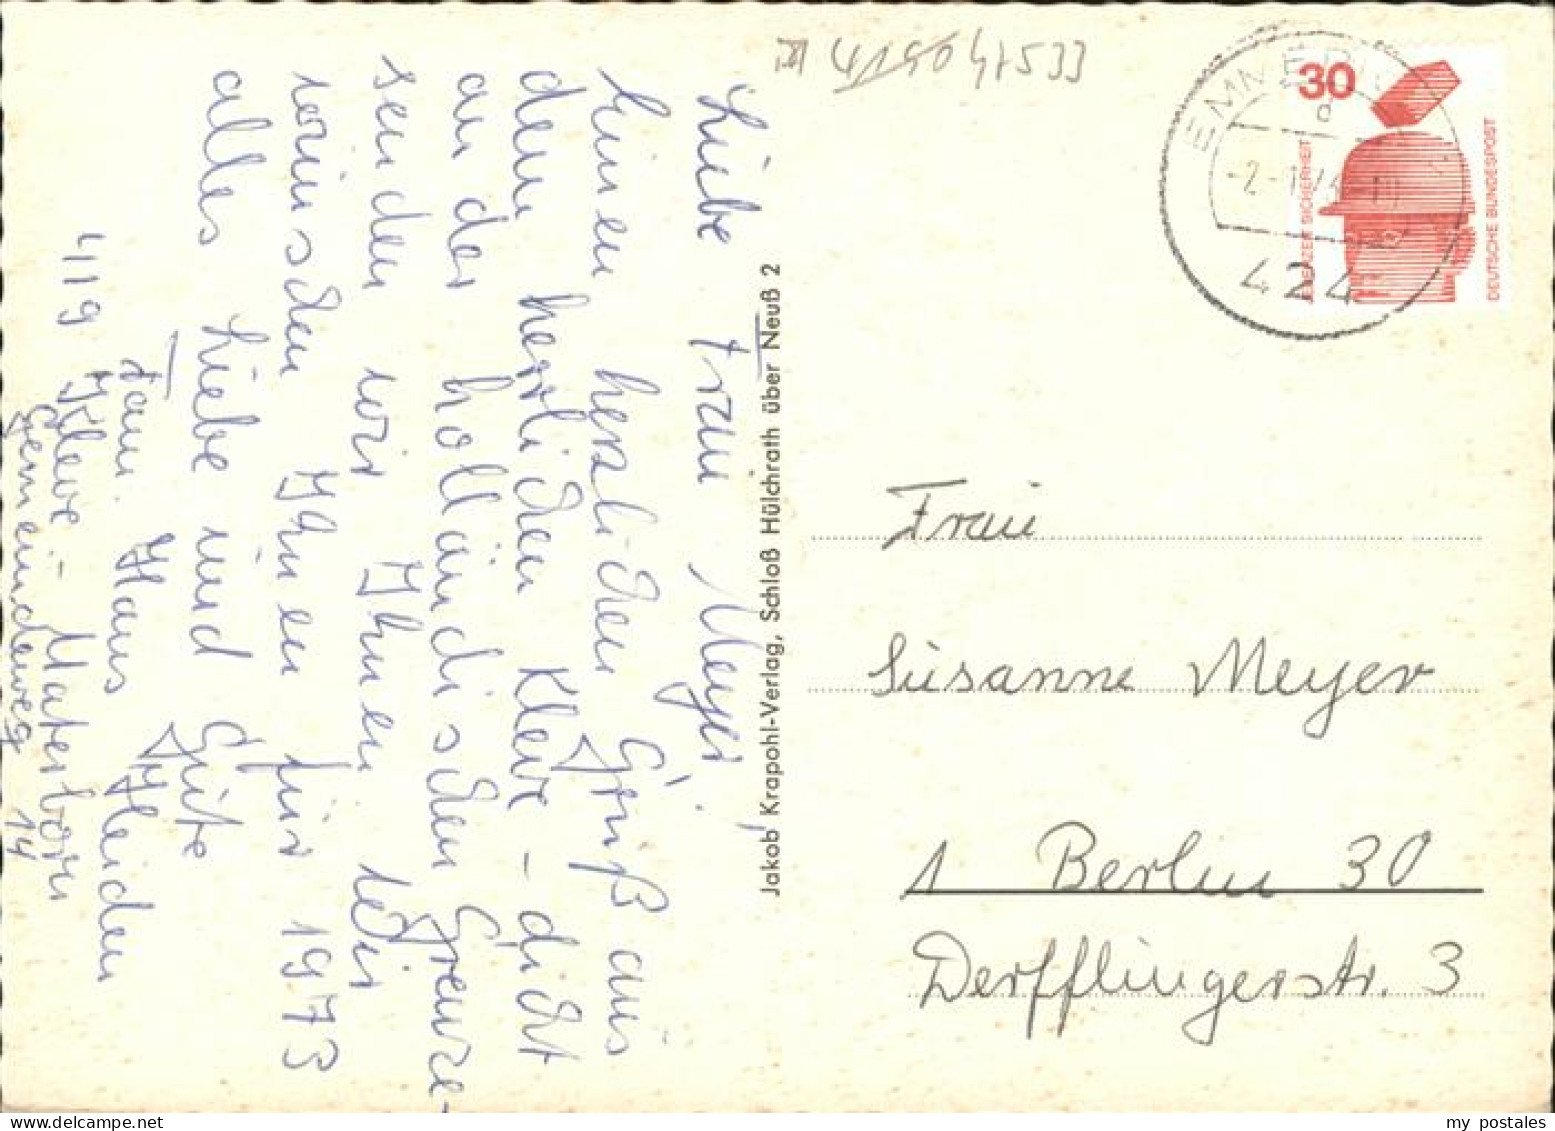 Liebe Frau Meyer,
Einen herzlichen Gruß aus
dem herrlichen Kleve - dicht
an der holländischen Grenze -
senden wir Ihnen. Wir
wünschen Ihnen für 1973
alles Liebe und Gute
Fam. Hans Heiden
4119 Kleve - Materborn
Gemeindeweg 14
Jakob Krapohl-Verlag, Schloß Hülchrath über Neuß 2
EMMERICH
d
424
30
JEDERZEIT SICHERHEIT
DEUTSCHE BUNDESPOST
Frau
Susanne Meyer
1 Berlin 30
Derfflingerstr. 3
my postales